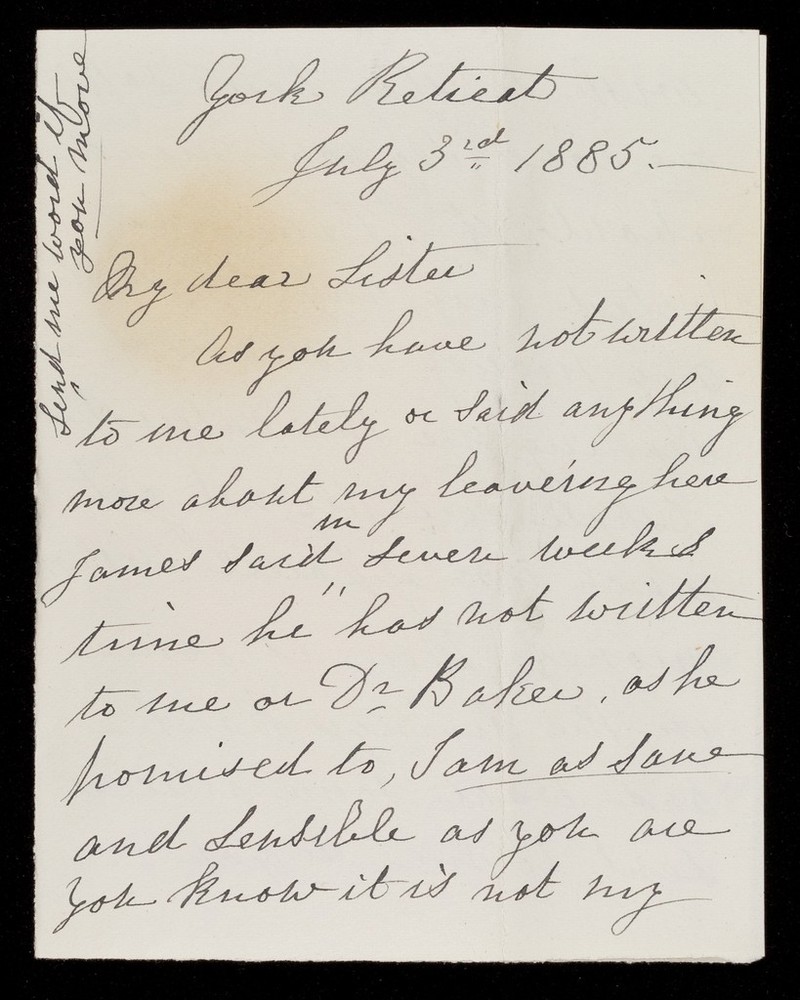 York Retreat
July 3rd 1885.
My dear Sister
As you have not written
to me lately or said anything
more about my leaveing here
James said in seven weeks
time he has not written
to me or Dr Baker, as he
promised to, I am as sane
and sensible as you are
you know it is not my
Send me word if
you move